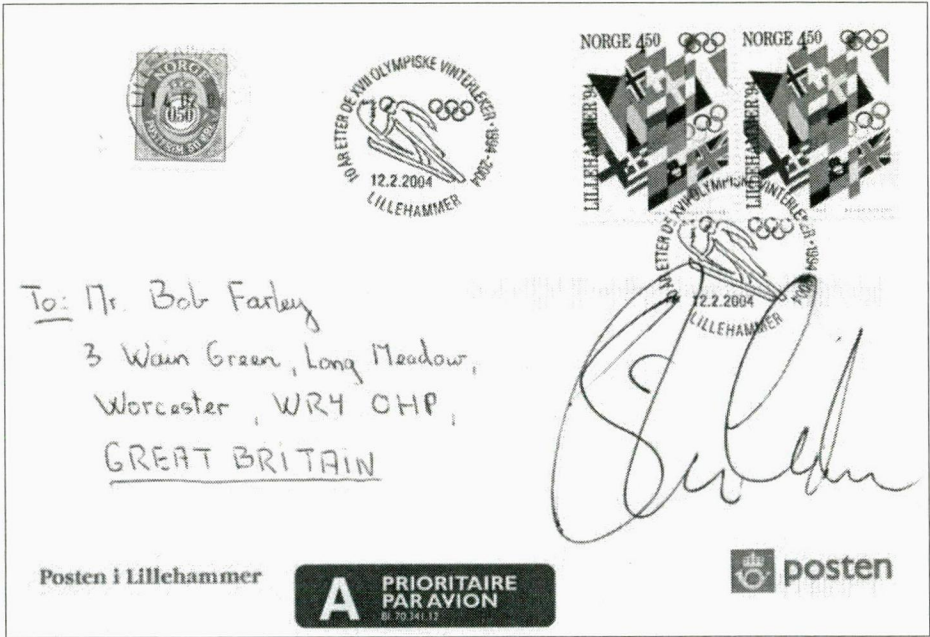 NORGE
0.50
10 ÅR ETTER DE XVII OLYMPISKE VINTERLEKER · 1994-2004
12.2.2004
LILLEHAMMER
NORGE 4.50
LILLEHAMMER '94
NORGE 4.50
LILLEHAMMER '94
10 ÅR ETTER DE XVII OLYMPISKE VINTERLEKER · 1994-2004
12.2.2004
LILLEHAMMER
To: Mr. Bob Farley
3 Wain Green, Long Meadow,
Worcester, WR4 OHP,
GREAT BRITAIN
Posten i Lillehammer
A PRIORITAIRE
PAR AVION
Bl. 70.341.12
posten